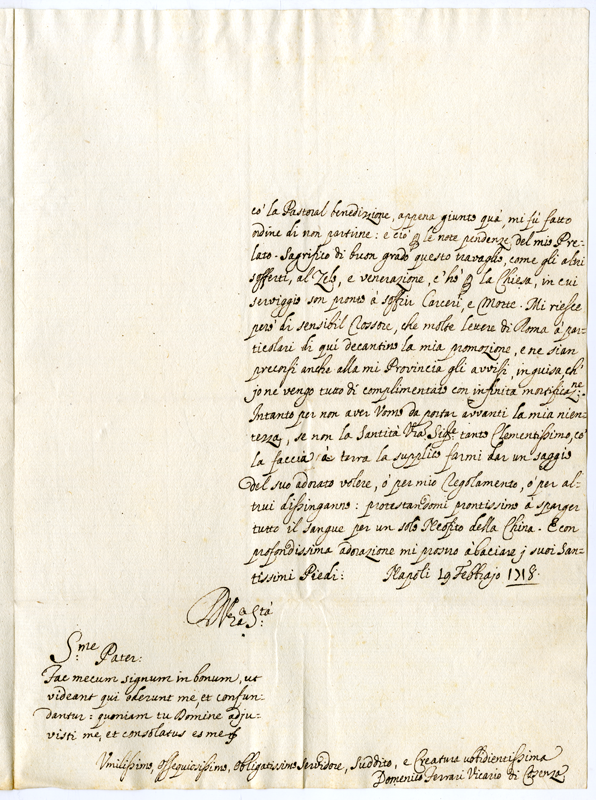 co' la Pastoral benedizione, appena giunto quà, mi fù fatto
ordine di non partire: e ciò ꝑ le note pendenze del mio Pre-
lato. Sagrifico di buon grado questo travaglio, come gli altri
sofferti, al Zelo, e venerazione, c'hò ꝑ la Chiesa, in cui
serviggio son pronto à soffrir Carceri, e Morte. Mi riesce
però di sensibil Rossore, che molte lettere di Roma à par-
ticolari di quì decantino la mia promozione, e ne sian
precorsi anche alla mi Provincia gli avvisi, in guisa ch'
jo ne vengo tutto dì complimentato con infinita mortificane:
Intanto per non aver Uomo da portar avvanti la mia nien-
tezza, se non la Santità Vra Sigre tanto Clementissimo, co'
la faccia à terra la supplico farmi dar un saggio
del suo adorato volere, ò per mio Regolamento, ò per al-
trui dissinganno: protestandomi prontissimo à sparger
tutto il sangue per un solo Neofito della China. E con
profondissima adorazione mi prostro à baciare j suoi San-
tissimi Piedi: Napoli 19 Febbrajo 1718.
Vra Stà
Sme Pater:
Fac mecum signum in bonum, ut
videant qui oderunt me, et confun-
dantur: quoniam tu Domine adju-
visti me, et consolatus es me
Umilissimo, Ossequiosissimo, Obligatissimo Servidore, Suddito, e Creatura ubidientissima
Domenico Ferrari Vicario di Cosenza